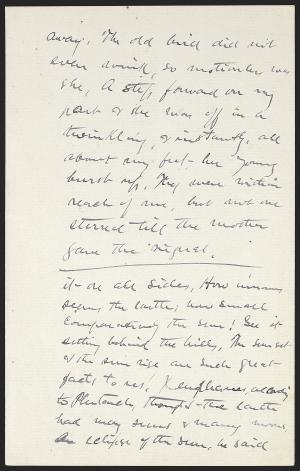 away. The old bird did not
even wink, so motionless was
she. A step forward on my
part & she was off in a
twinkling, & instantly, all
about my feet her young
burst up. They were within
reach of me, but not one
stirred till the mother
gave the signal.
it on all sides, How immense
seems the earth; how small
comparatively the sun! See it
setting behind the hills, The sunset
& the sun rise are such great
facts to us. Xenophanes, according
to Plutarch, thought the earth
had many suns & many moons.
An eclipse of the sun, he said